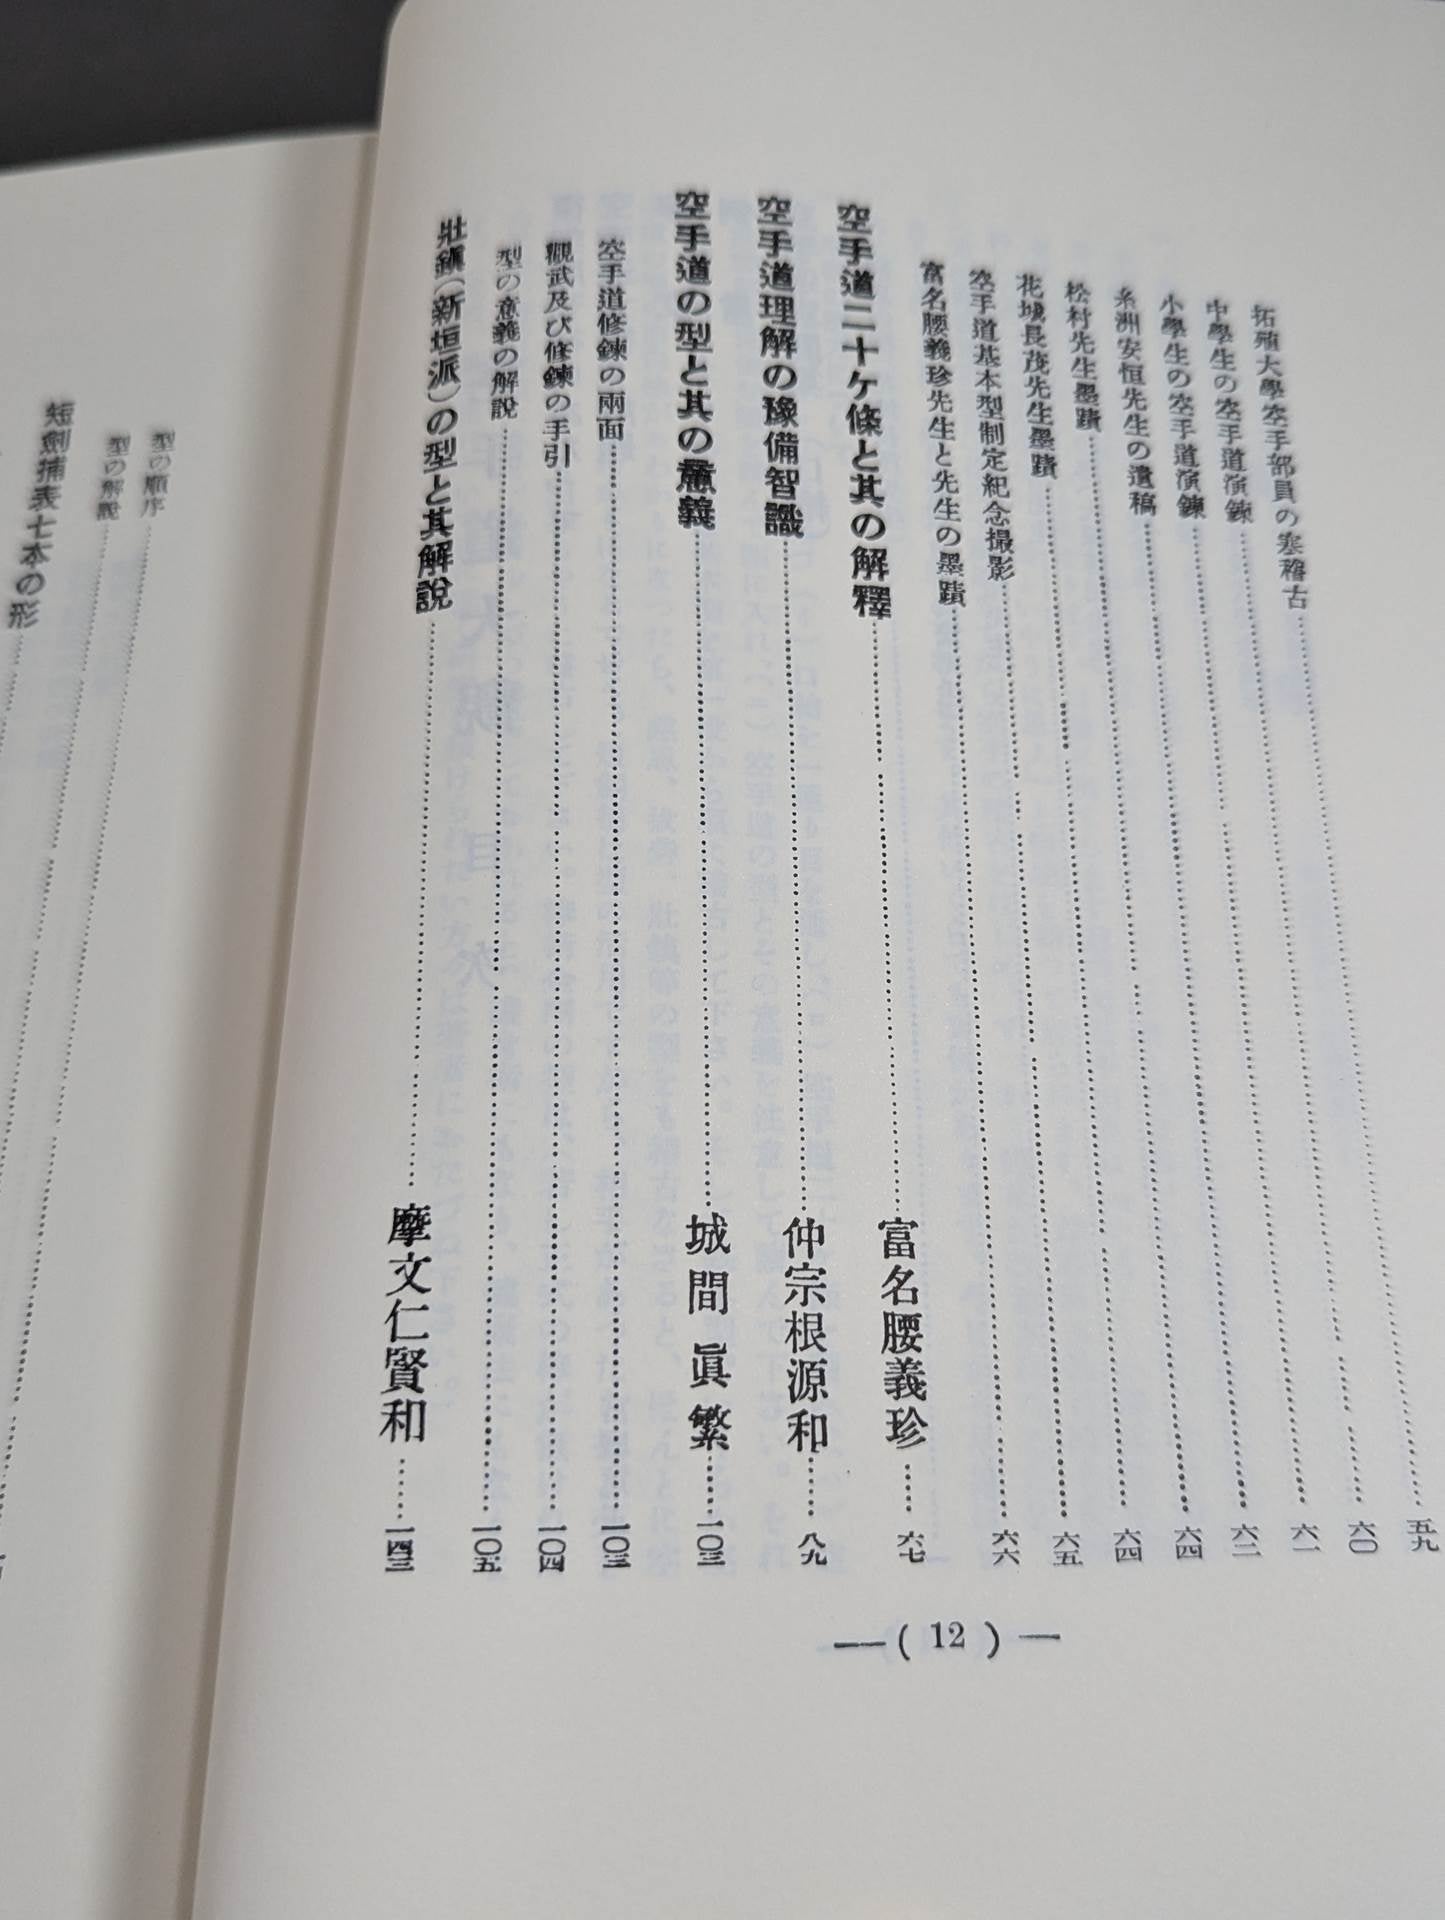 拓殖大學空手部員の寒稽古……五九
中學生の空手道演鍊……六〇
小學生の空手道演鍊……六一
糸洲安恒先生の遺稿……六二
松村先生墨蹟……六四
花城長茂先生墨蹟……六四
空手道基本型制定紀念撮影……六五
富名腰義珍先生と先生の墨蹟……六六
空手道二十ケ條と其の解釋……富名腰義珍……六七
空手道理解の豫備智識……仲宗根源和……八九
空手道の型と其の意義……城間眞繁……一〇三
空手道修鍊の兩面……一〇三
觀武及び修鍊の手引……一〇四
型の意義の解說……一〇五
壯鎭(新垣派)の型と其解說……摩文仁賢和……一四三
—( 12 )—
型の順序
型の解說
短劍捕表七本の形